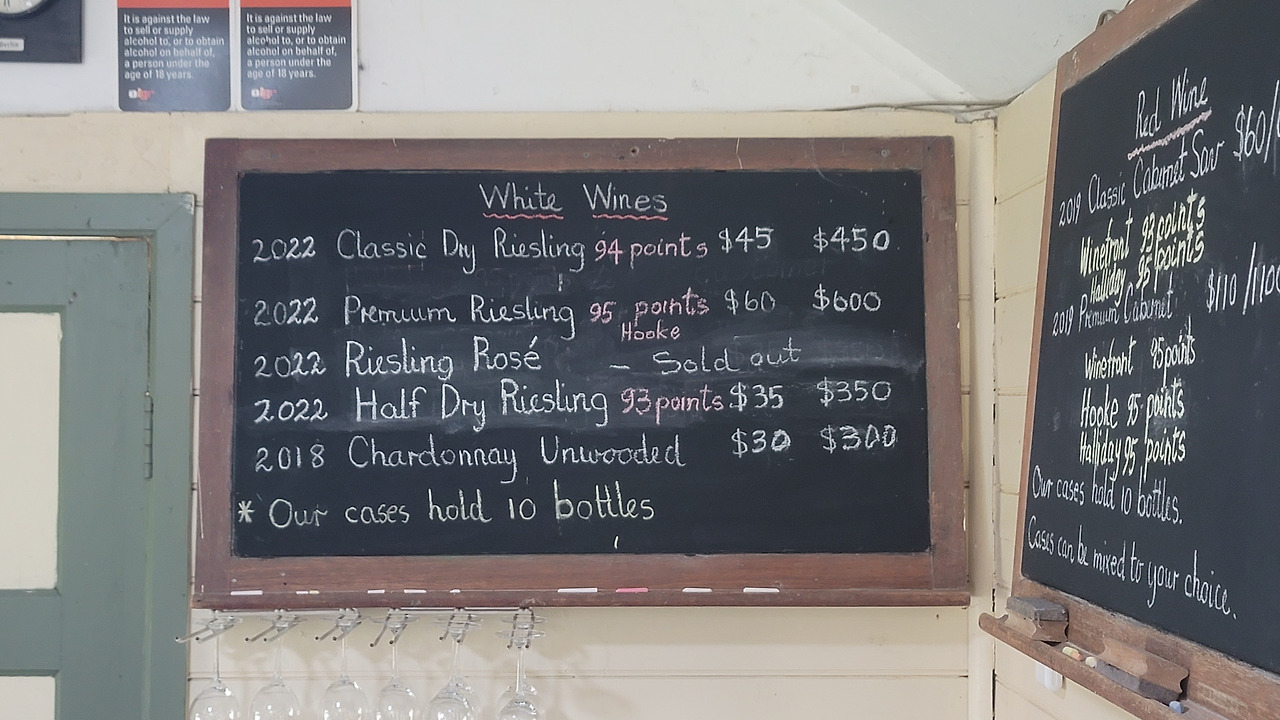 It is against the law
to sell or supply
alcohol to, or to obtain
alcohol on behalf of,
a person under the
age of 18 years.
It is against the law
to sell or supply
alcohol to, or to obtain
alcohol on behalf of,
a person under the
age of 18 years.
White Wines
2022 Classic Dry Riesling 94 points $45 $450
2022 Premium Riesling 95 points $60 $600
Hooke
2022 Riesling Rosé - Sold out
2022 Half Dry Riesling 93 points $35 $350
2018 Chardonnay Unwooded $30 $300
* Our cases hold 10 bottles
Red Wine
2019 Classic Cabernet Sauv $60/
Winefront 93 points
Halliday 95 points
2019 Premium Cabernet $110/1100
Winefront 95 points
Hooke 95 points
Halliday 95 points
Our cases hold 10 bottles.
Cases can be mixed to your choice.